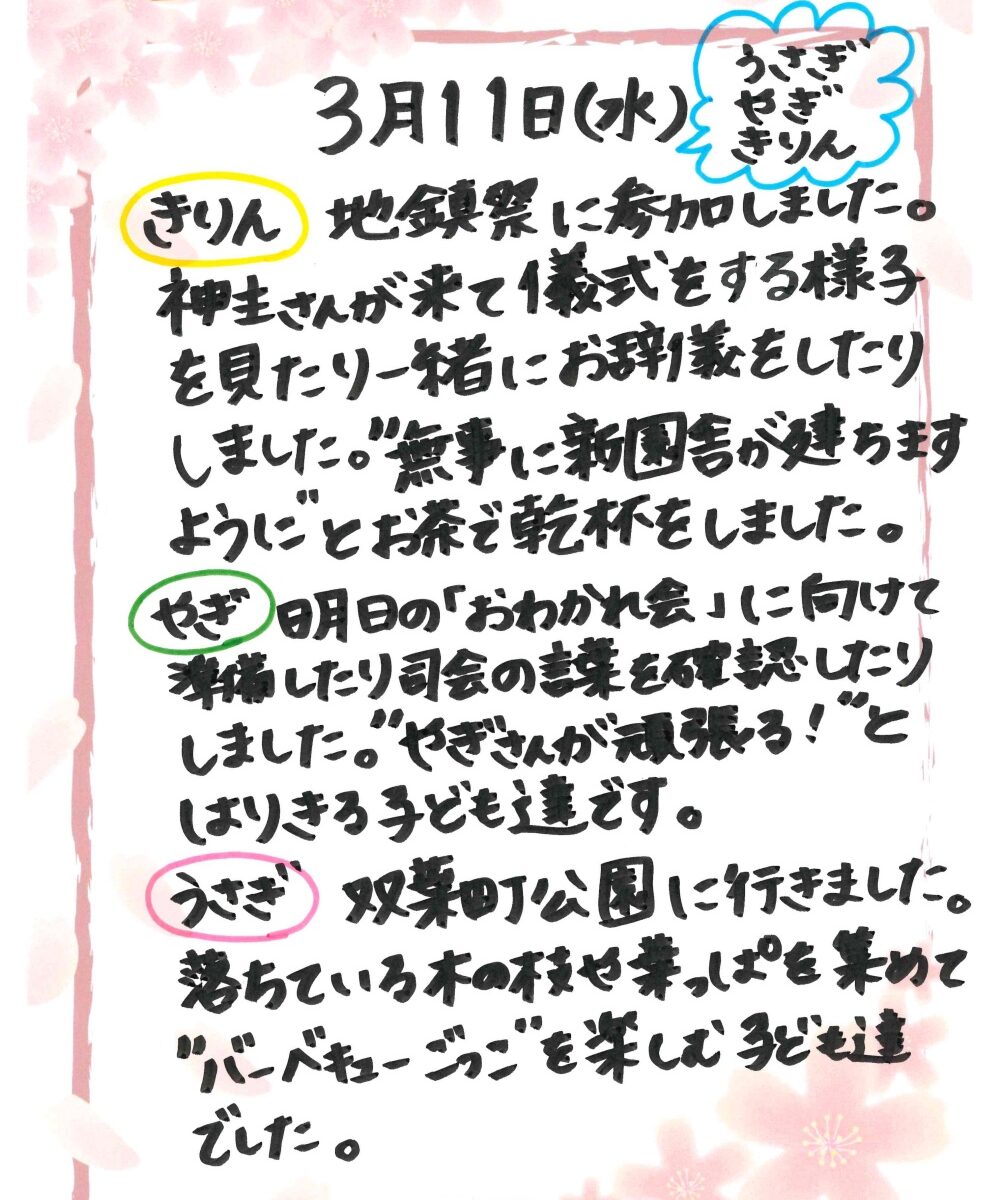 3月11日(水)
うさぎ
やぎ
きりん
きりん 地鎮祭に参加しました。
神主さんが来て儀式をする様子
を見たり一緒にお辞儀をしたり
しました。"無事に新園舎が建ちます
ように"とお茶で乾杯をしました。
やぎ 明日の「おわかれ会」に向けて
準備したり司会の言葉を確認したり
しました。"やぎさんが頑張る!"と
はりきる子ども達です。
うさぎ 双葉町公園に行きました。
落ちている木の枝や葉っぱを集めて
"バーベキューごっこ"を楽しむ子ども達
でした。